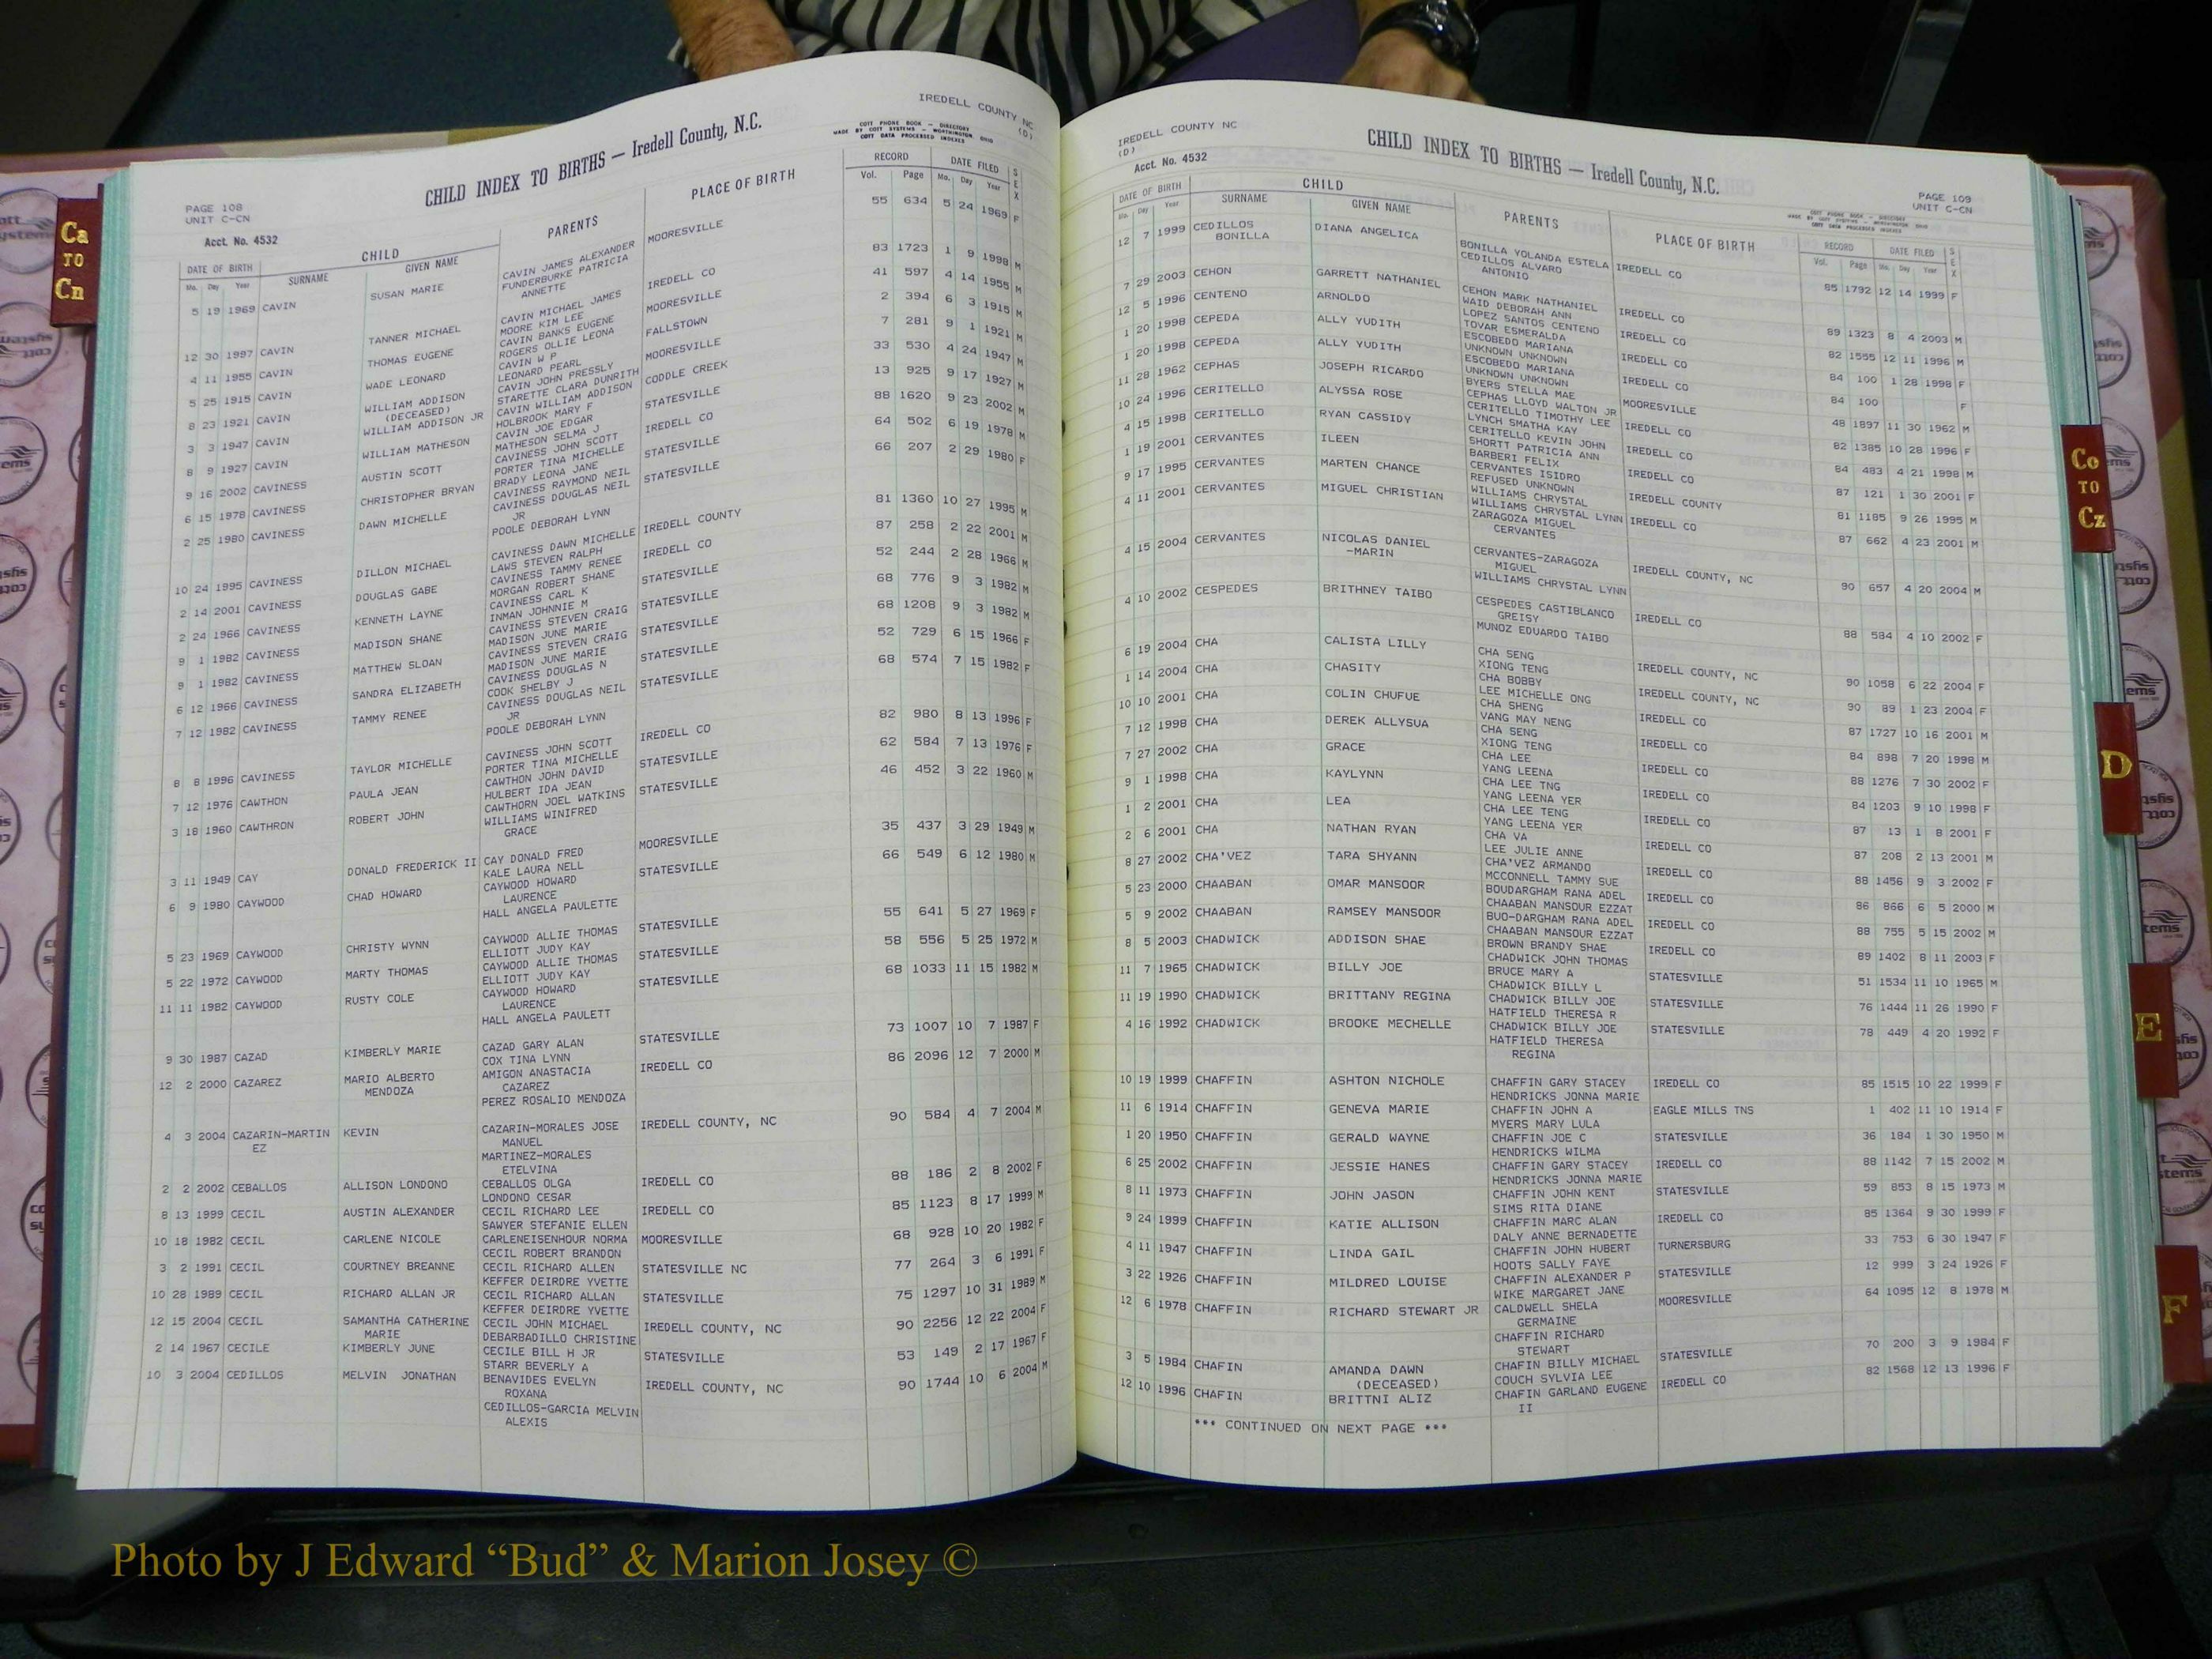 IREDELL COUNTY NC
(D)
COTT PHONE BOOK — DIRECTORY
MADE BY COTT SYSTEMS — WORTHINGTON, OHIO
COTT DATA PROCESSED INDEXES
CHILD INDEX TO BIRTHS — Iredell County, N.C.
PAGE 108
UNIT C-CN
Acct. No. 4532
DATE OF BIRTH CHILD PARENTS PLACE OF BIRTH RECORD DATE FILED SEX
Mo. Day Year SURNAME GIVEN NAME Vol. Page Mo. Day Year
5 19 1969 CAVIN SUSAN MARIE CAVIN JAMES ALEXANDER MOORESVILLE 55 634 5 24 1969 F
FUNDERBURKE PATRICIA
ANNETTE
12 30 1997 CAVIN TANNER MICHAEL CAVIN MICHAEL JAMES IREDELL CO 83 1723 1 9 1998 M
MOORE KIM LEE
4 11 1955 CAVIN THOMAS EUGENE CAVIN BANKS EUGENE MOORESVILLE 41 597 4 14 1955 M
ROGERS OLLIE LEONA
5 25 1915 CAVIN WADE LEONARD CAVIN W P FALLSTOWN 2 394 6 3 1915 M
LEONARD PEARL
8 23 1921 CAVIN WILLIAM ADDISON CAVIN JOHN PRESSLY MOORESVILLE 7 281 9 1 1921 M
(DECEASED) STARETTE CLARA DUNRITH
3 3 1947 CAVIN WILLIAM ADDISON JR CAVIN WILLIAM ADDISON CODDLE CREEK 33 530 4 24 1947 M
HOLBROOK MARY F
8 9 1927 CAVIN WILLIAM MATHESON CAVIN JOE EDGAR STATESVILLE 13 925 9 17 1927 M
MATHESON SELMA J
9 16 2002 CAVINESS AUSTIN SCOTT CAVINESS JOHN SCOTT IREDELL CO 88 1620 9 23 2002 M
PORTER TINA MICHELLE
6 15 1978 CAVINESS CHRISTOPHER BRYAN BRADY LEONA JANE STATESVILLE 64 502 6 19 1978 M
CAVINESS RAYMOND NEIL
2 25 1980 CAVINESS DAWN MICHELLE CAVINESS DOUGLAS NEIL STATESVILLE 66 207 2 29 1980 F
JR
POOLE DEBORAH LYNN
10 24 1995 CAVINESS DILLON MICHAEL CAVINESS DAWN MICHELLE IREDELL COUNTY 81 1360 10 27 1995 M
LAWS STEVEN RALPH
2 14 2001 CAVINESS DOUGLAS GABE CAVINESS TAMMY RENEE IREDELL CO 87 258 2 22 2001 M
MORGAN ROBERT SHANE
2 24 1966 CAVINESS KENNETH LAYNE CAVINESS CARL K STATESVILLE 52 244 2 28 1966 M
INMAN JOHNNIE M
9 1 1982 CAVINESS MADISON SHANE CAVINESS STEVEN CRAIG STATESVILLE 68 776 9 3 1982 M
MADISON JUNE MARIE
9 1 1982 CAVINESS MATTHEW SLOAN CAVINESS STEVEN CRAIG STATESVILLE 68 1208 9 3 1982 M
MADISON JUNE MARIE
6 12 1966 CAVINESS SANDRA ELIZABETH CAVINESS DOUGLAS N STATESVILLE 52 729 6 15 1966 F
COOK SHELBY J
7 12 1982 CAVINESS TAMMY RENEE CAVINESS DOUGLAS NEIL STATESVILLE 68 574 7 15 1982 F
JR
POOLE DEBORAH LYNN
8 8 1996 CAVINESS TAYLOR MICHELLE CAVINESS JOHN SCOTT IREDELL CO 82 980 8 13 1996 F
PORTER TINA MICHELLE
7 12 1976 CAWTHON PAULA JEAN CAWTHON JOHN DAVID STATESVILLE 62 584 7 13 1976 F
HULBERT IDA JEAN
3 18 1960 CAWTHRON ROBERT JOHN CAWTHORN JOEL WATKINS STATESVILLE 46 452 3 22 1960 M
WILLIAMS WINIFRED
GRACE
3 11 1949 CAY DONALD FREDERICK II CAY DONALD FRED MOORESVILLE 35 437 3 29 1949 M
KALE LAURA NELL
6 9 1980 CAYWOOD CHAD HOWARD CAYWOOD HOWARD STATESVILLE 66 549 6 12 1980 M
LAURENCE
HALL ANGELA PAULETTE
5 23 1969 CAYWOOD CHRISTY WYNN CAYWOOD ALLIE THOMAS STATESVILLE 55 641 5 27 1969 F
ELLIOTT JUDY KAY
5 22 1972 CAYWOOD MARTY THOMAS CAYWOOD ALLIE THOMAS STATESVILLE 58 556 5 25 1972 M
ELLIOTT JUDY KAY
11 11 1982 CAYWOOD RUSTY COLE CAYWOOD HOWARD STATESVILLE 68 1033 11 15 1982 M
LAURENCE
HALL ANGELA PAULETT
9 30 1987 CAZAD KIMBERLY MARIE CAZAD GARY ALAN STATESVILLE 73 1007 10 7 1987 F
COX TINA LYNN
12 2 2000 CAZAREZ MARIO ALBERTO AMIGON ANASTACIA IREDELL CO 86 2096 12 7 2000 M
MENDOZA CAZAREZ
PEREZ ROSALIO MENDOZA
4 3 2004 CAZARIN-MARTIN KEVIN CAZARIN-MORALES JOSE IREDELL COUNTY, NC 90 584 4 7 2004 M
EZ MANUEL
MARTINEZ-MORALES
ETELVINA
2 2 2002 CEBALLOS ALLISON LONDONO CEBALLOS OLGA IREDELL CO 88 186 2 8 2002 F
LONDONO CESAR
8 13 1999 CECIL AUSTIN ALEXANDER CECIL RICHARD LEE IREDELL CO 85 1123 8 17 1999 M
SAWYER STEFANIE ELLEN
10 18 1982 CECIL CARLENE NICOLE CARLENEISENHOUR NORMA MOORESVILLE 68 928 10 20 1982 F
CECIL ROBERT BRANDON
3 2 1991 CECIL COURTNEY BREANNE CECIL RICHARD ALLEN STATESVILLE NC 77 264 3 6 1991 F
KEFFER DEIRDRE YVETTE
10 28 1989 CECIL RICHARD ALLAN JR CECIL RICHARD ALLAN STATESVILLE 75 1297 10 31 1989 M
KEFFER DEIRDRE YVETTE
12 15 2004 CECIL SAMANTHA CATHERINE CECIL JOHN MICHAEL IREDELL COUNTY, NC 90 2256 12 22 2004 F
MARIE DEBARBADILLO CHRISTINE
2 14 1967 CECILE KIMBERLY JUNE CECILE BILL H JR STATESVILLE 53 149 2 17 1967 F
STARR BEVERLY A
10 3 2004 CEDILLOS MELVIN JONATHAN BENAVIDES EVELYN IREDELL COUNTY, NC 90 1744 10 6 2004 M
ROXANA
CEDILLOS-GARCIA MELVIN
ALEXIS
IREDELL COUNTY NC
(D)
Acct. No. 4532
CHILD INDEX TO BIRTHS — Iredell County, N.C.
PAGE 109
UNIT C-CN
COTT PHONE BOOK — DIRECTORY
MADE BY COTT SYSTEMS — WORTHINGTON, OHIO
COTT DATA PROCESSED INDEXES
DATE OF BIRTH CHILD PARENTS PLACE OF BIRTH RECORD DATE FILED SEX
Mo. Day Year SURNAME GIVEN NAME Vol. Page Mo. Day Year
12 7 1999 CEDILLOS DIANA ANGELICA BONILLA YOLANDA ESTELA IREDELL CO 85 1792 12 14 1999 F
BONILLA CEDILLOS ALVARO
ANTONIO
7 29 2003 CEHON GARRETT NATHANIEL CEHON MARK NATHANIEL IREDELL CO 89 1323 8 4 2003 M
WAID DEBORAH ANN
12 5 1996 CENTENO ARNOLDO LOPEZ SANTOS CENTENO IREDELL CO 82 1555 12 11 1996 M
TOVAR ESMERALDA
1 20 1998 CEPEDA ALLY YUDITH ESCOBEDO MARIANA IREDELL CO 84 100 1 28 1998 F
UNKNOWN UNKNOWN
1 20 1998 CEPEDA ALLY YUDITH ESCOBEDO MARIANA IREDELL CO 84 100 F
UNKNOWN UNKNOWN
11 28 1962 CEPHAS JOSEPH RICARDO BYERS STELLA MAE MOORESVILLE 48 1897 11 30 1962 M
CEPHAS LLOYD WALTON JR
10 24 1996 CERITELLO ALYSSA ROSE CERITELLO TIMOTHY LEE IREDELL CO 82 1385 10 28 1996 F
LYNCH SMATHA KAY
4 15 1998 CERITELLO RYAN CASSIDY CERITELLO KEVIN JOHN IREDELL CO 84 483 4 21 1998 M
SHORTT PATRICIA ANN
1 19 2001 CERVANTES ILEEN BARBERI FELIX IREDELL CO 87 121 1 30 2001 F
CERVANTES ISIDRO
9 17 1995 CERVANTES MARTEN CHANCE REFUSED UNKNOWN IREDELL COUNTY 81 1185 9 26 1995 M
WILLIAMS CHRYSTAL
4 11 2001 CERVANTES MIGUEL CHRISTIAN WILLIAMS CHRYSTAL LYNN IREDELL CO 87 662 4 23 2001 M
ZARAGOZA MIGUEL
CERVANTES
4 15 2004 CERVANTES NICOLAS DANIEL CERVANTES-ZARAGOZA IREDELL COUNTY, NC 90 657 4 20 2004 M
-MARIN MIGUEL
WILLIAMS CHRYSTAL LYNN
4 10 2002 CESPEDES BRITHNEY TAIBO CESPEDES CASTIBLANCO IREDELL CO 88 584 4 10 2002 F
GREISY
MUNOZ EDUARDO TAIBO
6 19 2004 CHA CALISTA LILLY CHA SENG IREDELL COUNTY, NC 90 1058 6 22 2004 F
XIONG TENG
1 14 2004 CHA CHASITY CHA BOBBY IREDELL COUNTY, NC 90 89 1 23 2004 F
LEE MICHELLE ONG
10 10 2001 CHA COLIN CHUFUE CHA SHENG IREDELL CO 87 1727 10 16 2001 M
VANG MAY NENG
7 12 1998 CHA DEREK ALLYSUA CHA SENG IREDELL CO 84 898 7 20 1998 M
XIONG TENG
7 27 2002 CHA GRACE CHA LEE IREDELL CO 88 1276 7 30 2002 F
YANG LEENA
9 1 1998 CHA KAYLYNN CHA LEE TNG IREDELL CO 84 1203 9 10 1998 F
YANG LEENA YER
1 2 2001 CHA LEA CHA LEE TENG IREDELL CO 87 13 1 8 2001 F
YANG LEENA YER
2 6 2001 CHA NATHAN RYAN CHA VA IREDELL CO 87 208 2 13 2001 M
LEE JULIE ANNE
8 27 2002 CHA'VEZ TARA SHYANN CHA'VEZ ARMANDO IREDELL CO 88 1456 9 3 2002 F
MCCONNELL TAMMY SUE
5 23 2000 CHAABAN OMAR MANSOOR BOUDARGHAM RANA ADEL IREDELL CO 86 866 6 5 2000 M
CHAABAN MANSOUR EZZAT
5 9 2002 CHAABAN RAMSEY MANSOOR BUO-DARGHAM RANA ADEL IREDELL CO 88 755 5 15 2002 M
CHAABAN MANSOUR EZZAT
8 5 2003 CHADWICK ADDISON SHAE BROWN BRANDY SHAE IREDELL CO 89 1402 8 11 2003 F
CHADWICK JOHN THOMAS
11 7 1965 CHADWICK BILLY JOE BRUCE MARY A STATESVILLE 51 1534 11 10 1965 M
CHADWICK BILLY L
11 19 1990 CHADWICK BRITTANY REGINA CHADWICK BILLY JOE STATESVILLE 76 1444 11 26 1990 F
HATFIELD THERESA R
4 16 1992 CHADWICK BROOKE MECHELLE CHADWICK BILLY JOE STATESVILLE 78 449 4 20 1992 F
HATFIELD THERESA
REGINA
10 19 1999 CHAFFIN ASHTON NICHOLE CHAFFIN GARY STACEY IREDELL CO 85 1515 10 22 1999 F
HENDRICKS JONNA MARIE
11 6 1914 CHAFFIN GENEVA MARIE CHAFFIN JOHN A EAGLE MILLS TNS 1 402 11 10 1914 F
MYERS MARY LULA
1 20 1950 CHAFFIN GERALD WAYNE CHAFFIN JOE C STATESVILLE 36 184 1 30 1950 M
HENDRICKS WILMA
6 25 2002 CHAFFIN JESSIE HANES CHAFFIN GARY STACEY IREDELL CO 88 1142 7 15 2002 M
HENDRICKS JONNA MARIE
8 11 1973 CHAFFIN JOHN JASON CHAFFIN JOHN KENT STATESVILLE 59 853 8 15 1973 M
SIMS RITA DIANE
9 24 1999 CHAFFIN KATIE ALLISON CHAFFIN MARC ALAN IREDELL CO 85 1364 9 30 1999 F
DALY ANNE BERNADETTE
4 11 1947 CHAFFIN LINDA GAIL CHAFFIN JOHN HUBERT TURNERSBURG 33 753 6 30 1947 F
HOOTS SALLY FAYE
3 22 1926 CHAFFIN MILDRED LOUISE CHAFFIN ALEXANDER P STATESVILLE 12 999 3 24 1926 F
WIKE MARGARET JANE
12 6 1978 CHAFFIN RICHARD STEWART JR CALDWELL SHELA MOORESVILLE 64 1095 12 8 1978 M
GERMAINE
CHAFFIN RICHARD
STEWART
3 5 1984 CHAFIN AMANDA DAWN CHAFIN BILLY MICHAEL STATESVILLE 70 200 3 9 1984 F
(DECEASED) COUCH SYLVIA LEE
12 10 1996 CHAFIN BRITTNI ALIZ CHAFIN GARLAND EUGENE IREDELL CO 82 1568 12 13 1996 F
II
*** CONTINUED ON NEXT PAGE ***
Ca
TO
Cn
Co
TO
Cz
D
E
F
Photo by J Edward “Bud” & Marion Josey ©